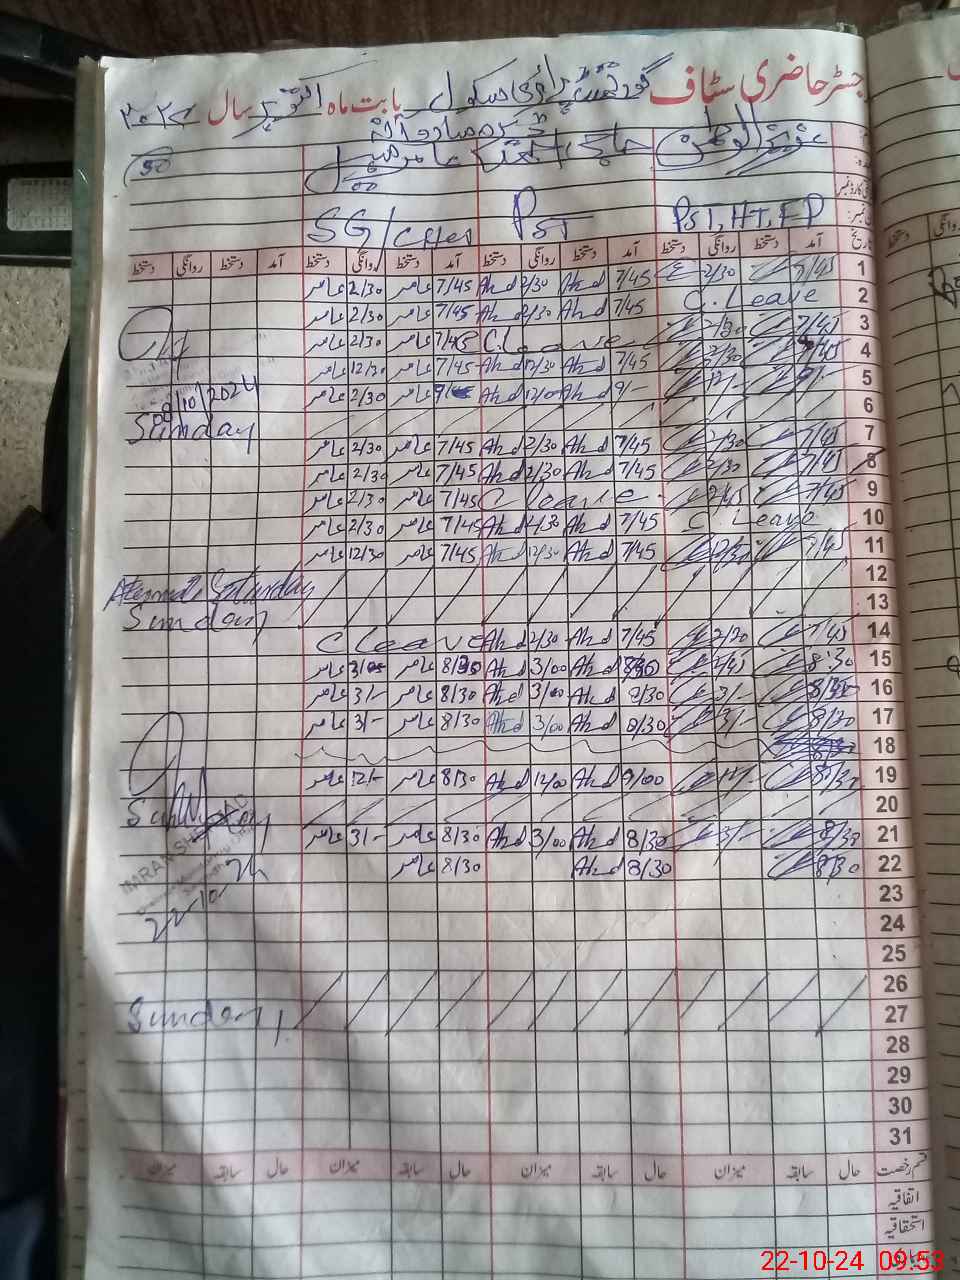 رجسٹر حاضری سٹاف گورنمنٹ پرائمری سکول بابت ماہ اکتوبر سال ۲۰۲۴
عزیز الوطن
PST, HT, FP PST SG/
تاریخ آمد دستخط روانگی دستخط آمد دستخط روانگی دستخط آمد دستخط روانگی دستخط آمد دستخط روانگی دستخط
1 7/45 2/30 7/45 Ahd 2/30 Ahd 7/45 عامر 2/30 عامر
2 C. Leave 7/45 Ahd 2/30 Ahd 7/45 عامر 2/30 عامر
3 7/45 2/30 C. Leave 7/45 عامر 2/30 عامر
4 7/45 2/30 7/45 Ahd 12/30 Ahd 7/45 عامر 12/30 عامر
5 9/- 12/- 9/- Ahd 12/00 Ahd عامر 2/30 عامر
08/10/2024
6 Sunday
7 7/45 2/30 7/45 Ahd 2/30 Ahd 7/45 عامر 2/30 عامر
8 7/45 2/30 7/45 Ahd 2/30 Ahd 7/45 عامر 2/30 عامر
9 7/45 2/45 C leave 7/45 عامر 2/30 عامر
10 C. Leave 7/45 Ahd 2/30 Ahd 7/45 عامر 2/30 عامر
11 7/45 12/30 7/45 Ahd 12/30 Ahd 7/45 عامر 12/30 عامر
12 Saturday
13 Sunday
14 7/45 2/30 7/45 Ahd 2/30 Ahd C leave
15 8:30 2/45 8/30 Ahd 3/00 Ahd 8/30 عامر عامر
16 8/30 3/- 8/30 Ahd 3/00 Ahd 8/30 عامر 3/- عامر
17 8/30 3/- 8/30 Ahd 3/00 Ahd 8/30 عامر 3/- عامر
18
19 8/30 12/- 9/00 Ahd 12/00 Ahd 8/30 عامر 12/- عامر
20 Sunday
21 8/30 3/- 8/30 Ahd 3/00 Ahd 8/30 عامر 3/- عامر
22 8/30 8/30 Ahd 8/30 عامر
IMRAN SHEHZAD
22-10-24
23
24
25
26
27 Sunday
28
29
30
31
قسم رخصت حال سابقہ میزان حال سابقہ میزان حال سابقہ میزان حال سابقہ میزان
اتفاقیہ
استحقاقیہ
22-10-24 09:53